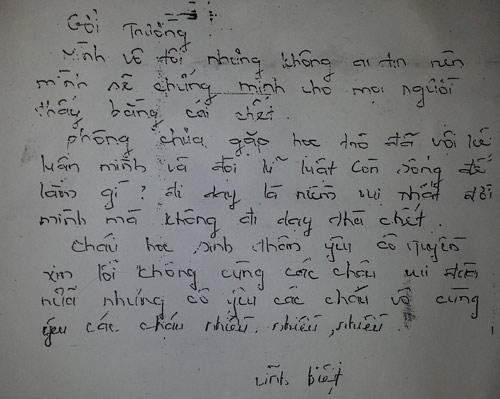 Gởi Trường
Mình vô tội nhưng không ai tin nên
mình sẽ chứng minh cho mọi người
thấy bằng cái chết.
Phòng chưa gặp học trò đã vội kế
luận mình và đòi kỉ luật còn sống để
làm gì? đi dạy là niềm vui nhất đời
mình mà không đi dạy thà chết.
Cháu học sinh thân yêu cô Tuyền
xin lỗi không cùng các cháu vui đùa
nữa nhưng cô yêu các cháu vô cùng
yêu các cháu nhiều, nhiều, nhiều.
Vĩnh biệt